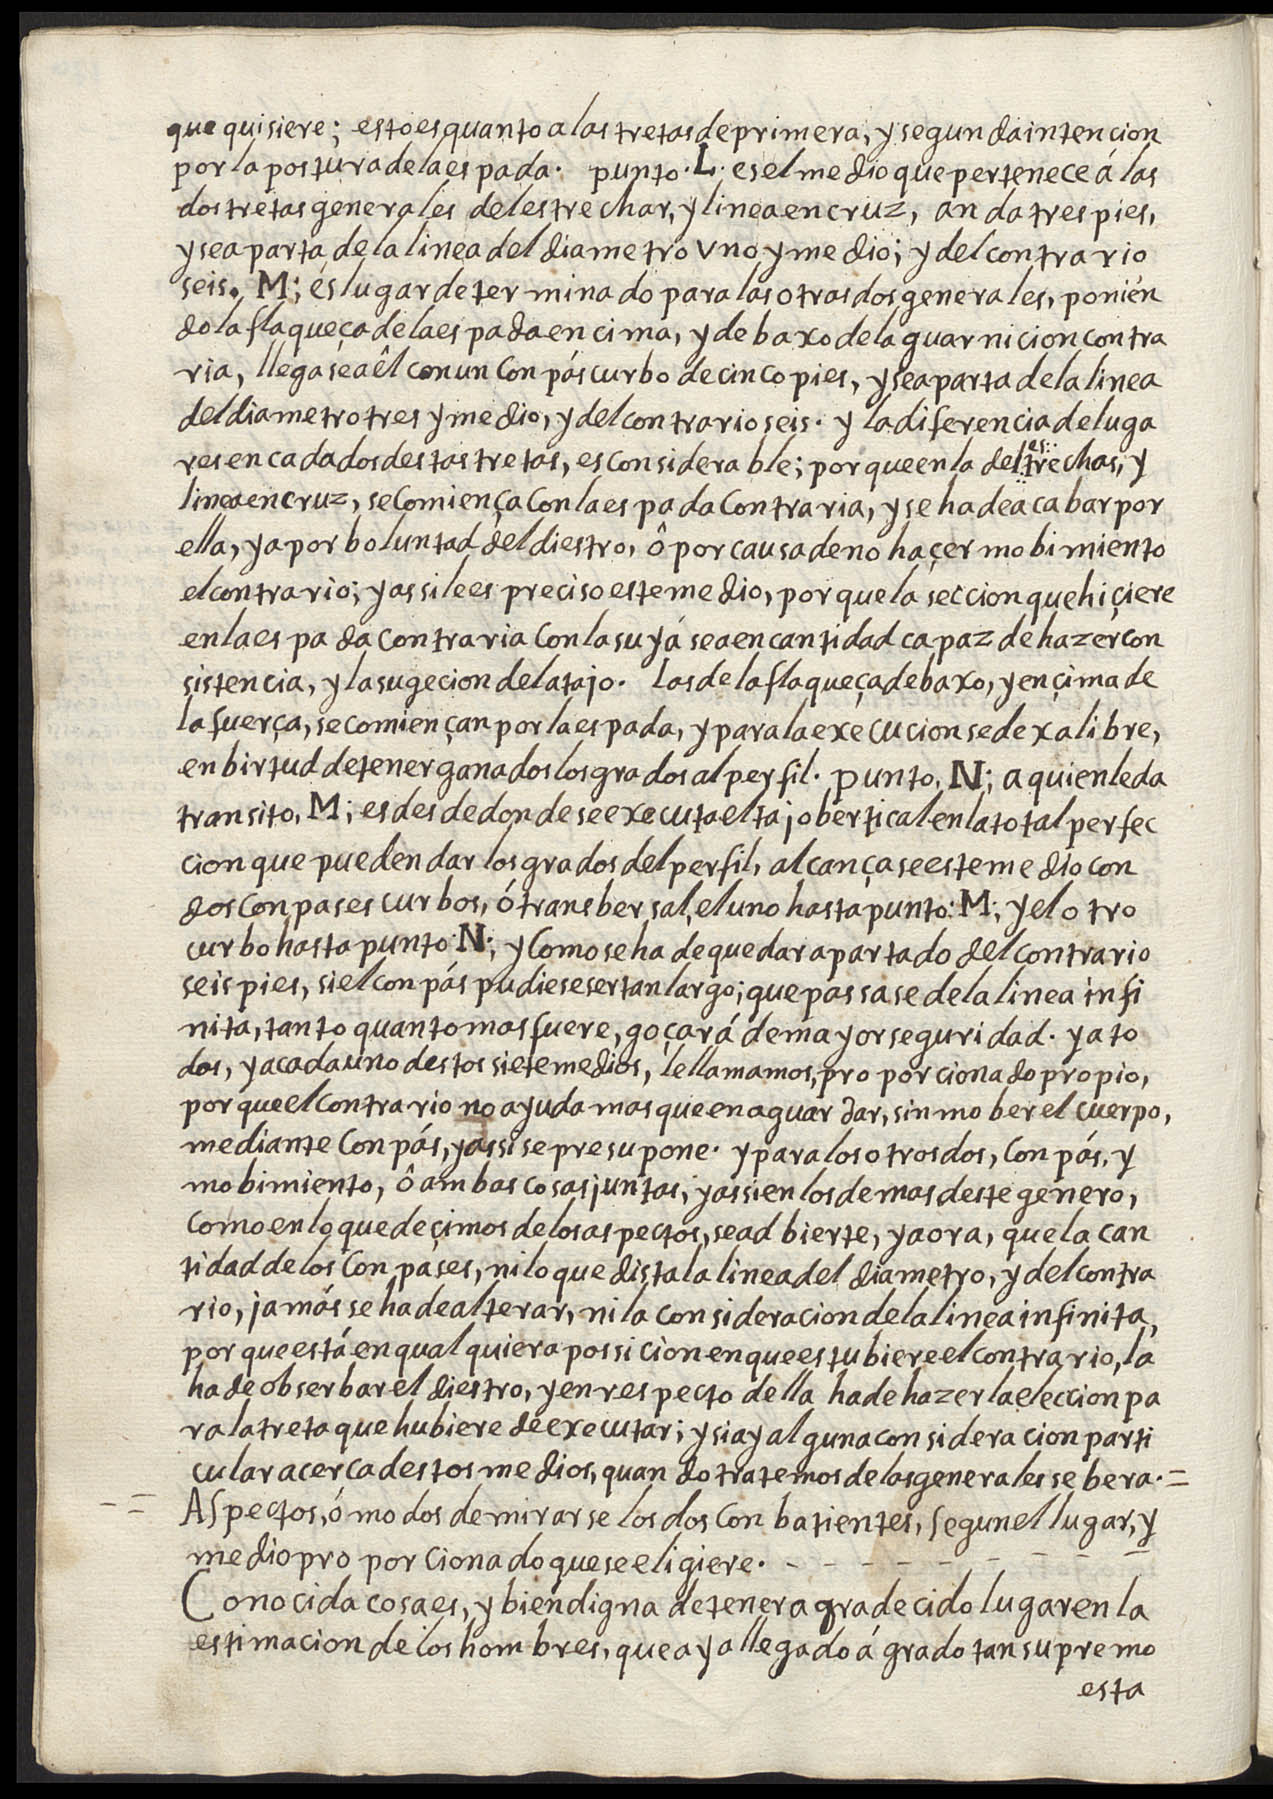 que quisiere; esto es quanto a las tretas de primera, y segunda intencion
por la postura de la espada. punto. L. es el medio que pertenece á las
dos tretas generales del estrechar, y linea en cruz, anda tres pies,
y se aparta de la linea del diametro vno y medio; y del contrario
seis. M; és lugar determinado para las otras dos generales, ponién
do la flaqueça de la espada encima, y debaxo de la guarnicion contra
ria, llegase a êl con un conpás curbo de cinco pies, y se aparta de la linea
del diametro tres y medio, y del contrario seis. y la diferencia de luga
res en cada dos destas tretas, es considerable; porque en la del estrechar, y
linea en cruz, se comiença con la espada contraria, y se ha de acabar por
ella, ya por boluntad del diestro, ô por causa de no haçer mobimiento
el contrario; y assi le es preciso este medio, porque la seccion que hiçiere
en la espada contraria con la suyá sea en cantidad capaz de hazer con
sistencia, y la sugecion del atajo. Las de la flaqueça debaxo, y ençima de
la fuerça, se comiençan por la espada, y para la execucion se dexa libre,
en birtud de tener ganados los grados al perfil. punto. N; a quien le da
transito. M; es desde donde se executa el tajo bertical en la total perfec
cion que pueden dar los grados del perfil, alcançase este medio con
dos conpases curbos, ó transbersal, el uno hasta punto: M; y el otro
curbo hasta punto: N; y como se ha de quedar apartado del contrario
seis pies, si el conpás pudiese ser tan largo; que passase de la linea infi
nita, tanto quanto mas fuere, goçará de mayor seguridad. y a to
dos, y a cada uno destos siete medios, le llamamos, proporcionado propio,
porque el contrario no ayuda mas que en aguardar, sin mober el cuerpo,
mediante conpás, y assi se presupone. y para los otros dos, conpás, y
mobimiento, ô ambas cosas juntas; y assi en los demas deste género,
como en lo que deçimos de los aspectos, se adbierte, y aora, que la can
tidad de los conpases, ni lo que dista la linea del diametro, y del contra
rio, jamás se ha de alterar, ni la consideracion de la linea infinita,
porque está en qualquiera possicion en que estubiere el contrario, la
ha de obserbar el diestro, y en respecto della ha de hazer la eleccion pa
ra la treta que hubiere de executar; y si ay alguna consideracion parti
cular acerca destos medios, quando tratemos de las generales se bera. =
- = Aspectos, ó modos de mirarse los dos conbatientes, segun el lugar, y
medio proporcionado que se eligiere. - - - - - - - -
Conocida cosa es, y bien digna de tener agradecido lugar en la
estimacion de los hombres, que aya llegado á grado tan supremo
esta